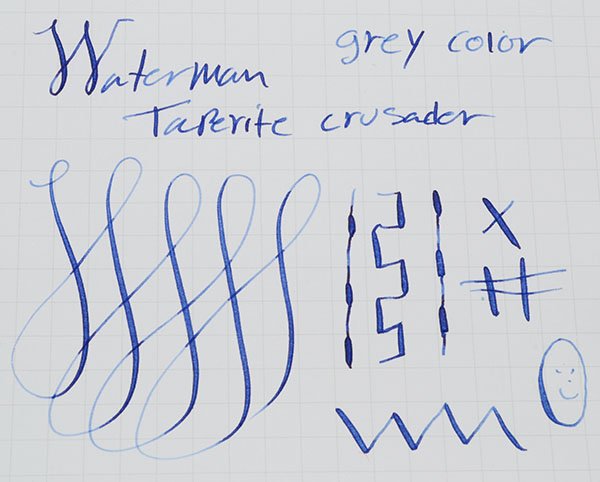 Waterman
grey color
Taperite crusader